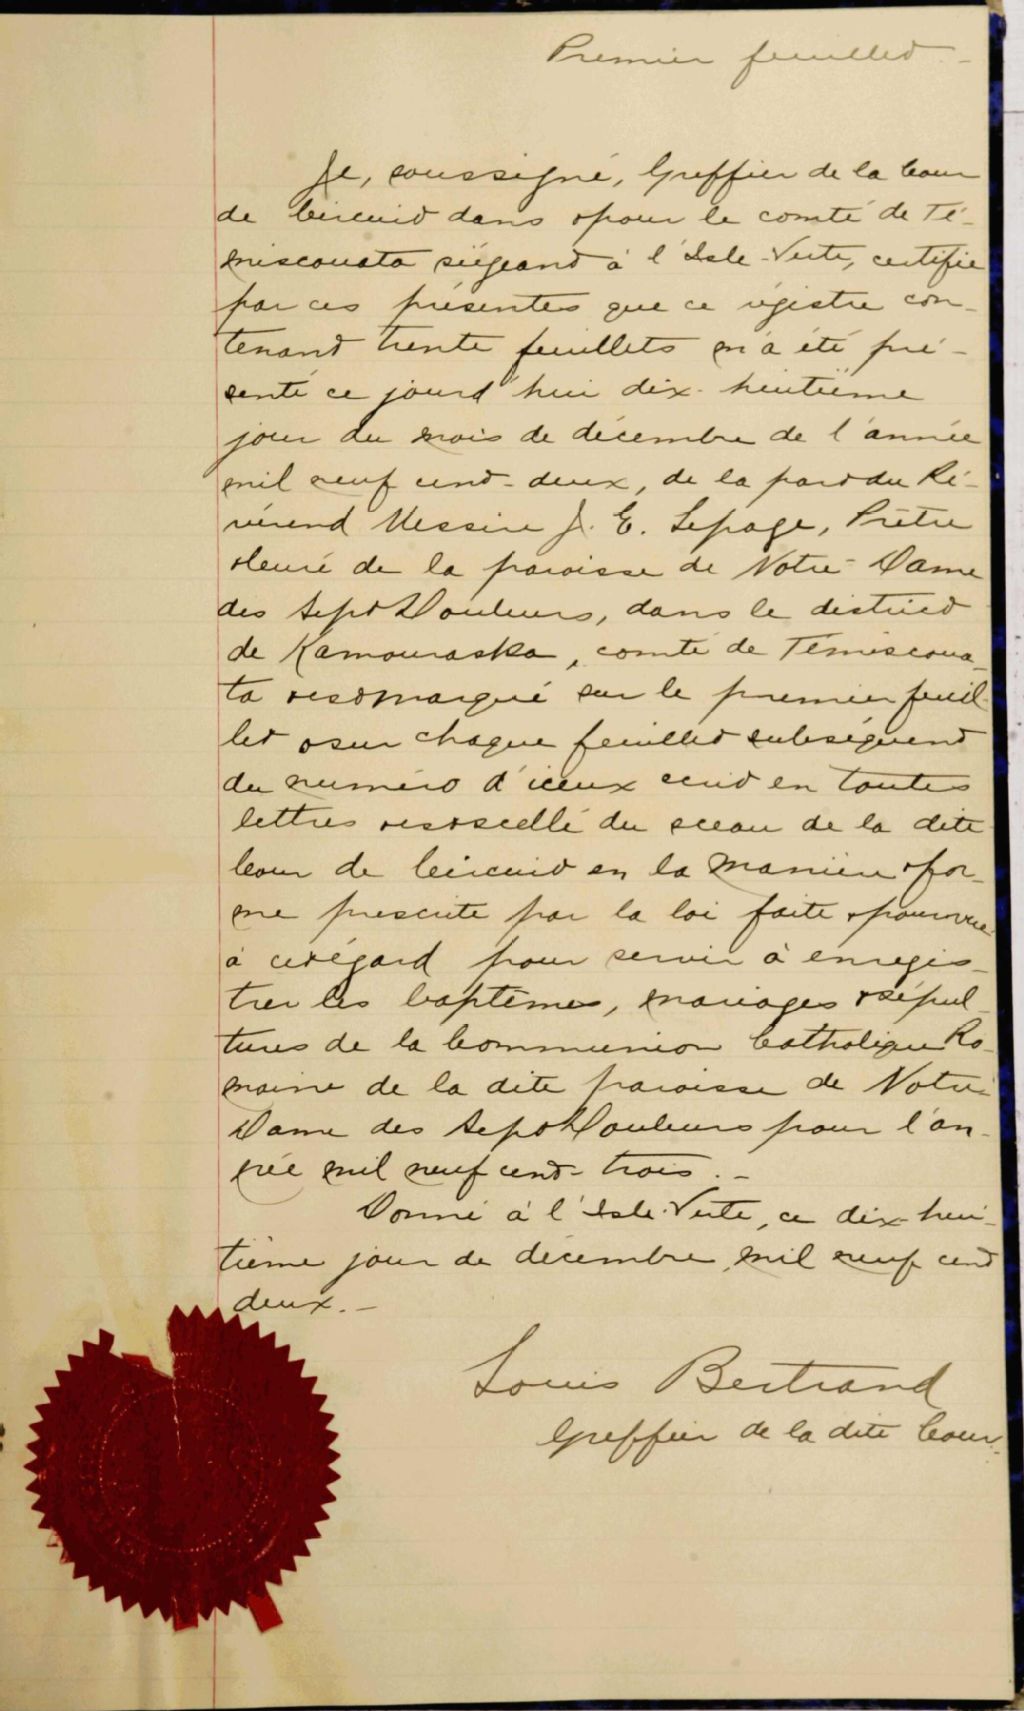 Premier feuillet.-
Je, soussigné, Greffier de la Cour
de Circuit dans & pour le comté de Té-
miscouata siégeant à l'Isle-Verte, certifie
par ces présentes que ce régistre con-
tenant trente feuillets m'a été pré-
senté ce jourd'hui dix-huitième
jour du mois de décembre de l'année
mil neuf cent-deux, de la part du Ré-
vérend Messire J. E. Lepage, Prêtre
& Curé de la paroisse de Notre-Dame
des Sept Douleurs, dans le district
de Kamouraska, comté de Témiscoua-
ta & est marqué sur le premier feuil-
let & sur chaque feuillet subséquent
du numéro d'iceux écrit en toutes
lettres & est scellé du sceau de la dite
Cour de Circuit en la manière & for-
me prescrite par la loi faite & pourvue
à cet égard pour servir à enregis-
trer les baptêmes, mariages & sépul-
tures de la Communion Catholique Ro-
maine de la dite paroisse de Notre-
Dame des Sept Douleurs pour l'an-
née mil neuf cent-trois.-
Donné à l'Isle-Verte, ce dix-hui-
tième jour de décembre mil neuf cent
deux.-
Louis Bertrand
Greffier de la dite Cour.